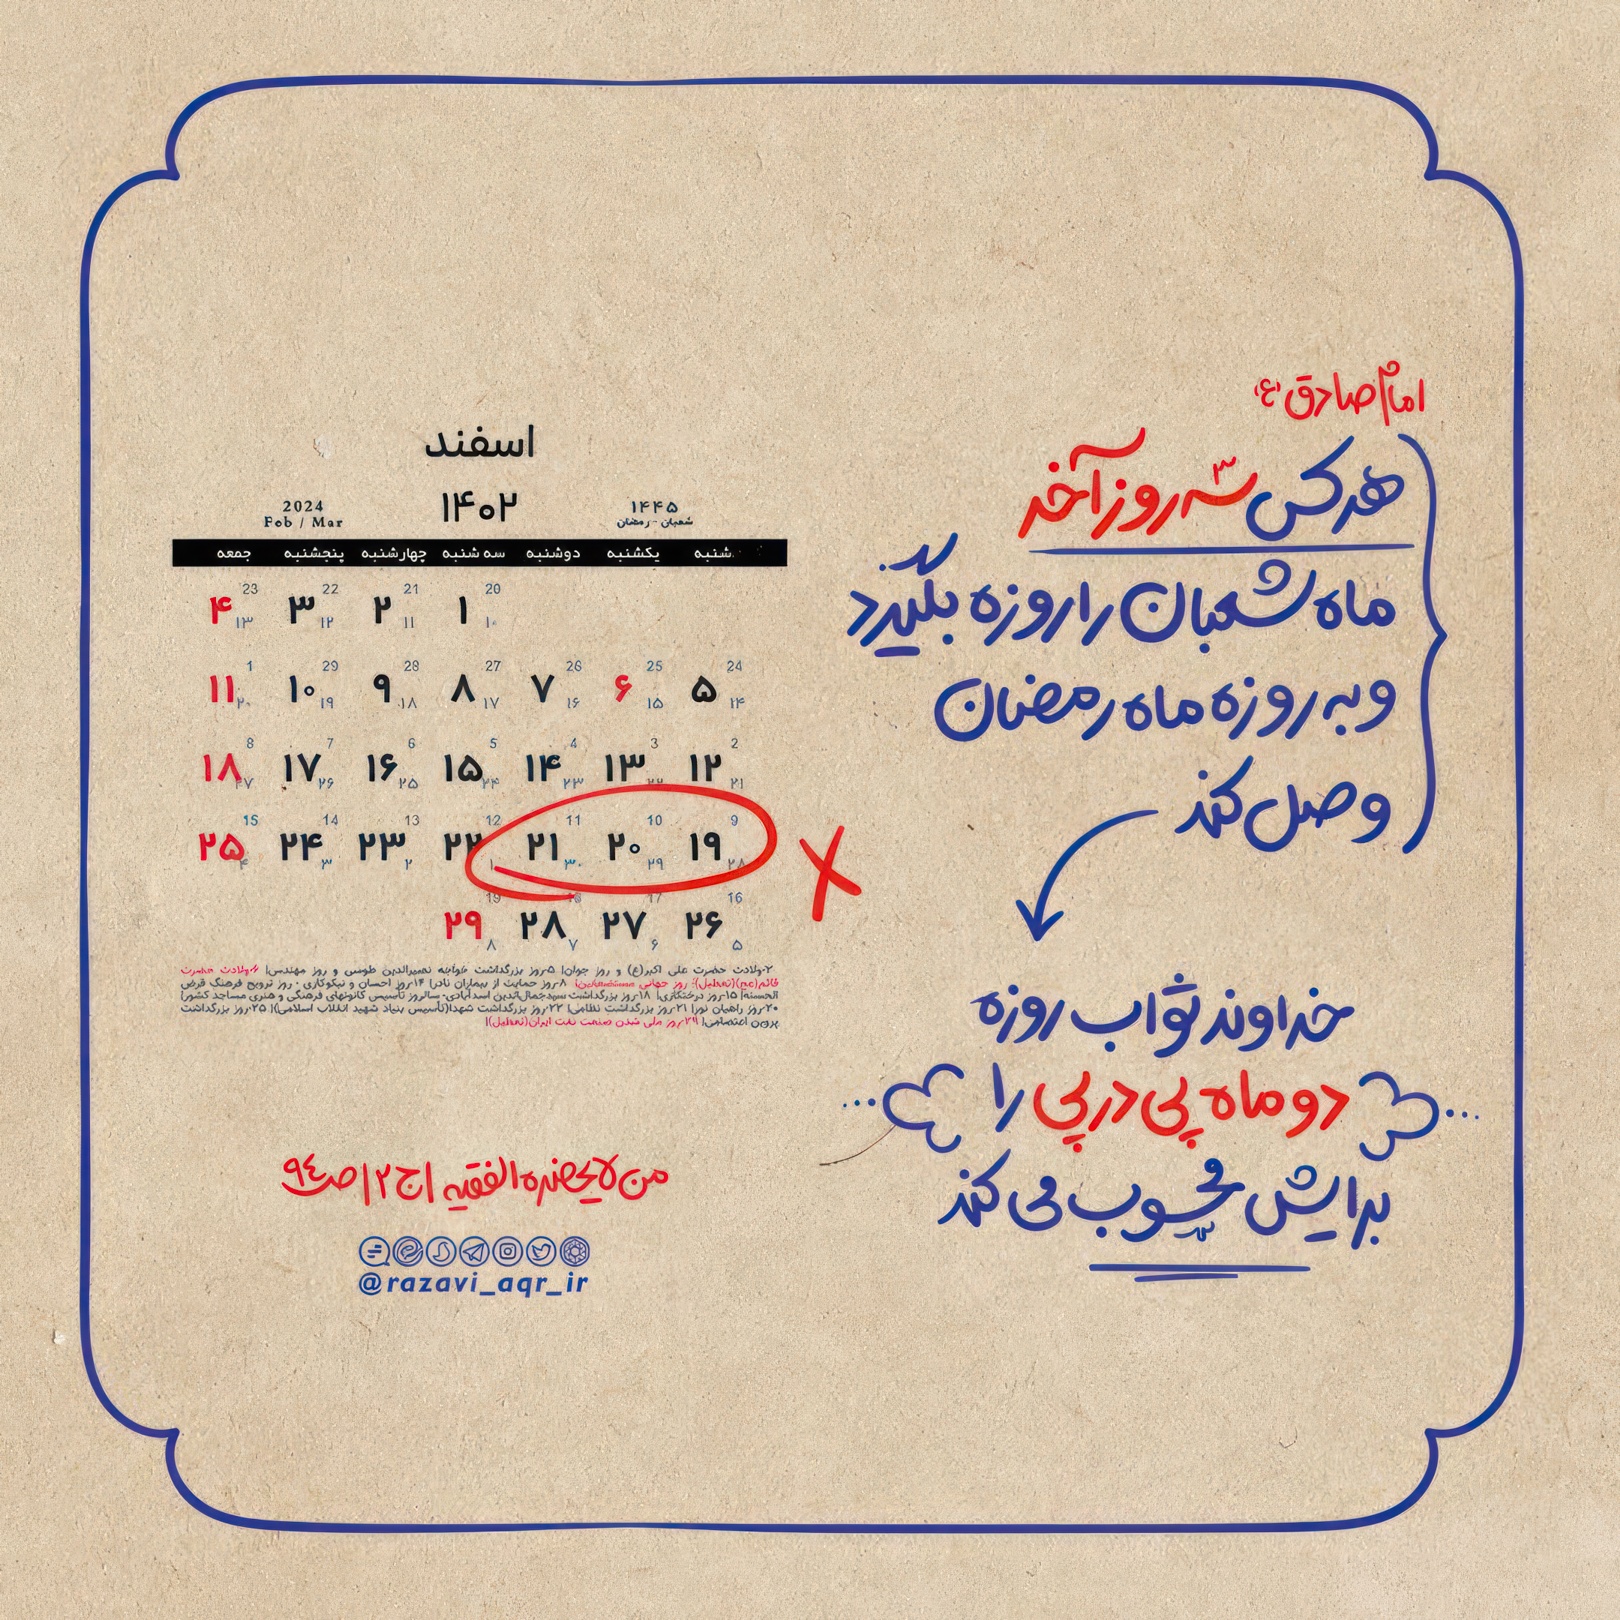 امام صادق (ع)
هر کس سه روز آخر
ماه شعبان را روزه بگیرد
و به روزه ماه رمضان
وصل کند
خداوند ثواب روزه
... دو ماه پی در پی را ...
برایش محسوب می کند
اسفند
۱۴۰۲
۱۴۴۵
شعبان - رمضان
2024
Feb / Mar
شنبه یکشنبه دوشنبه سه شنبه چهارشنبه پنجشنبه جمعه
20 21 22 23
۱ ۲ ۳ ۴
۱۰ ۱۱ ۱۲ ۱۳
24 25 26 27 28 29 1
۵ ۶ ۷ ۸ ۹ ۱۰ ۱۱
۱۴ ۱۵ ۱۶ ۱۷ ۱۸ ۱۹ ۲۰
2 3 4 5 6 7 8
۱۲ ۱۳ ۱۴ ۱۵ ۱۶ ۱۷ ۱۸
۲۱ ۲۲ ۲۳ ۲۴ ۲۵ ۲۶ ۲۷
9 10 11 12 13 14 15
۱۹ ۲۰ ۲۱ ۲۲ ۲۳ ۲۴ ۲۵
۲۸ ۲۹ ۳۰ ۱ ۲ ۳ ۴
16 17 18 19
۲۶ ۲۷ ۲۸ ۲۹
۵ ۶ ۷ ۸
۲-ولادت حضرت علی اکبر(ع) و روز جوان| ۵-روز بزرگداشت خواجه نصیرالدین طوسی و روز مهندس| ۶-ولادت حضرت
قائم(عج)(تعطیل): روز جهانی مستضعفین| ۸-روز حمایت از بیماران نادر| ۱۴-روز احسان و نیکوکاری - روز ترویج فرهنگ قرض
الحسنه| ۱۵-روز درختکاری| ۱۸-روز بزرگداشت سیدجمال‌الدین اسدآبادی- سالروز تأسیس کانونهای فرهنگی و هنری مساجد کشور|
۲۰-روز راهیان نور| ۲۱-روز بزرگداشت نظامی| ۲۲-روز بزرگداشت شهدا(تأسیس بنیاد شهید انقلاب اسلامی)| ۲۵-روز بزرگداشت
پروین اعتصامی| ۲۹-روز ملی شدن صنعت نفت ایران(تعطیل)|
من لا یحضره الفقیه | ج ۲ | ص ۹۴
@razavi_aqr_ir